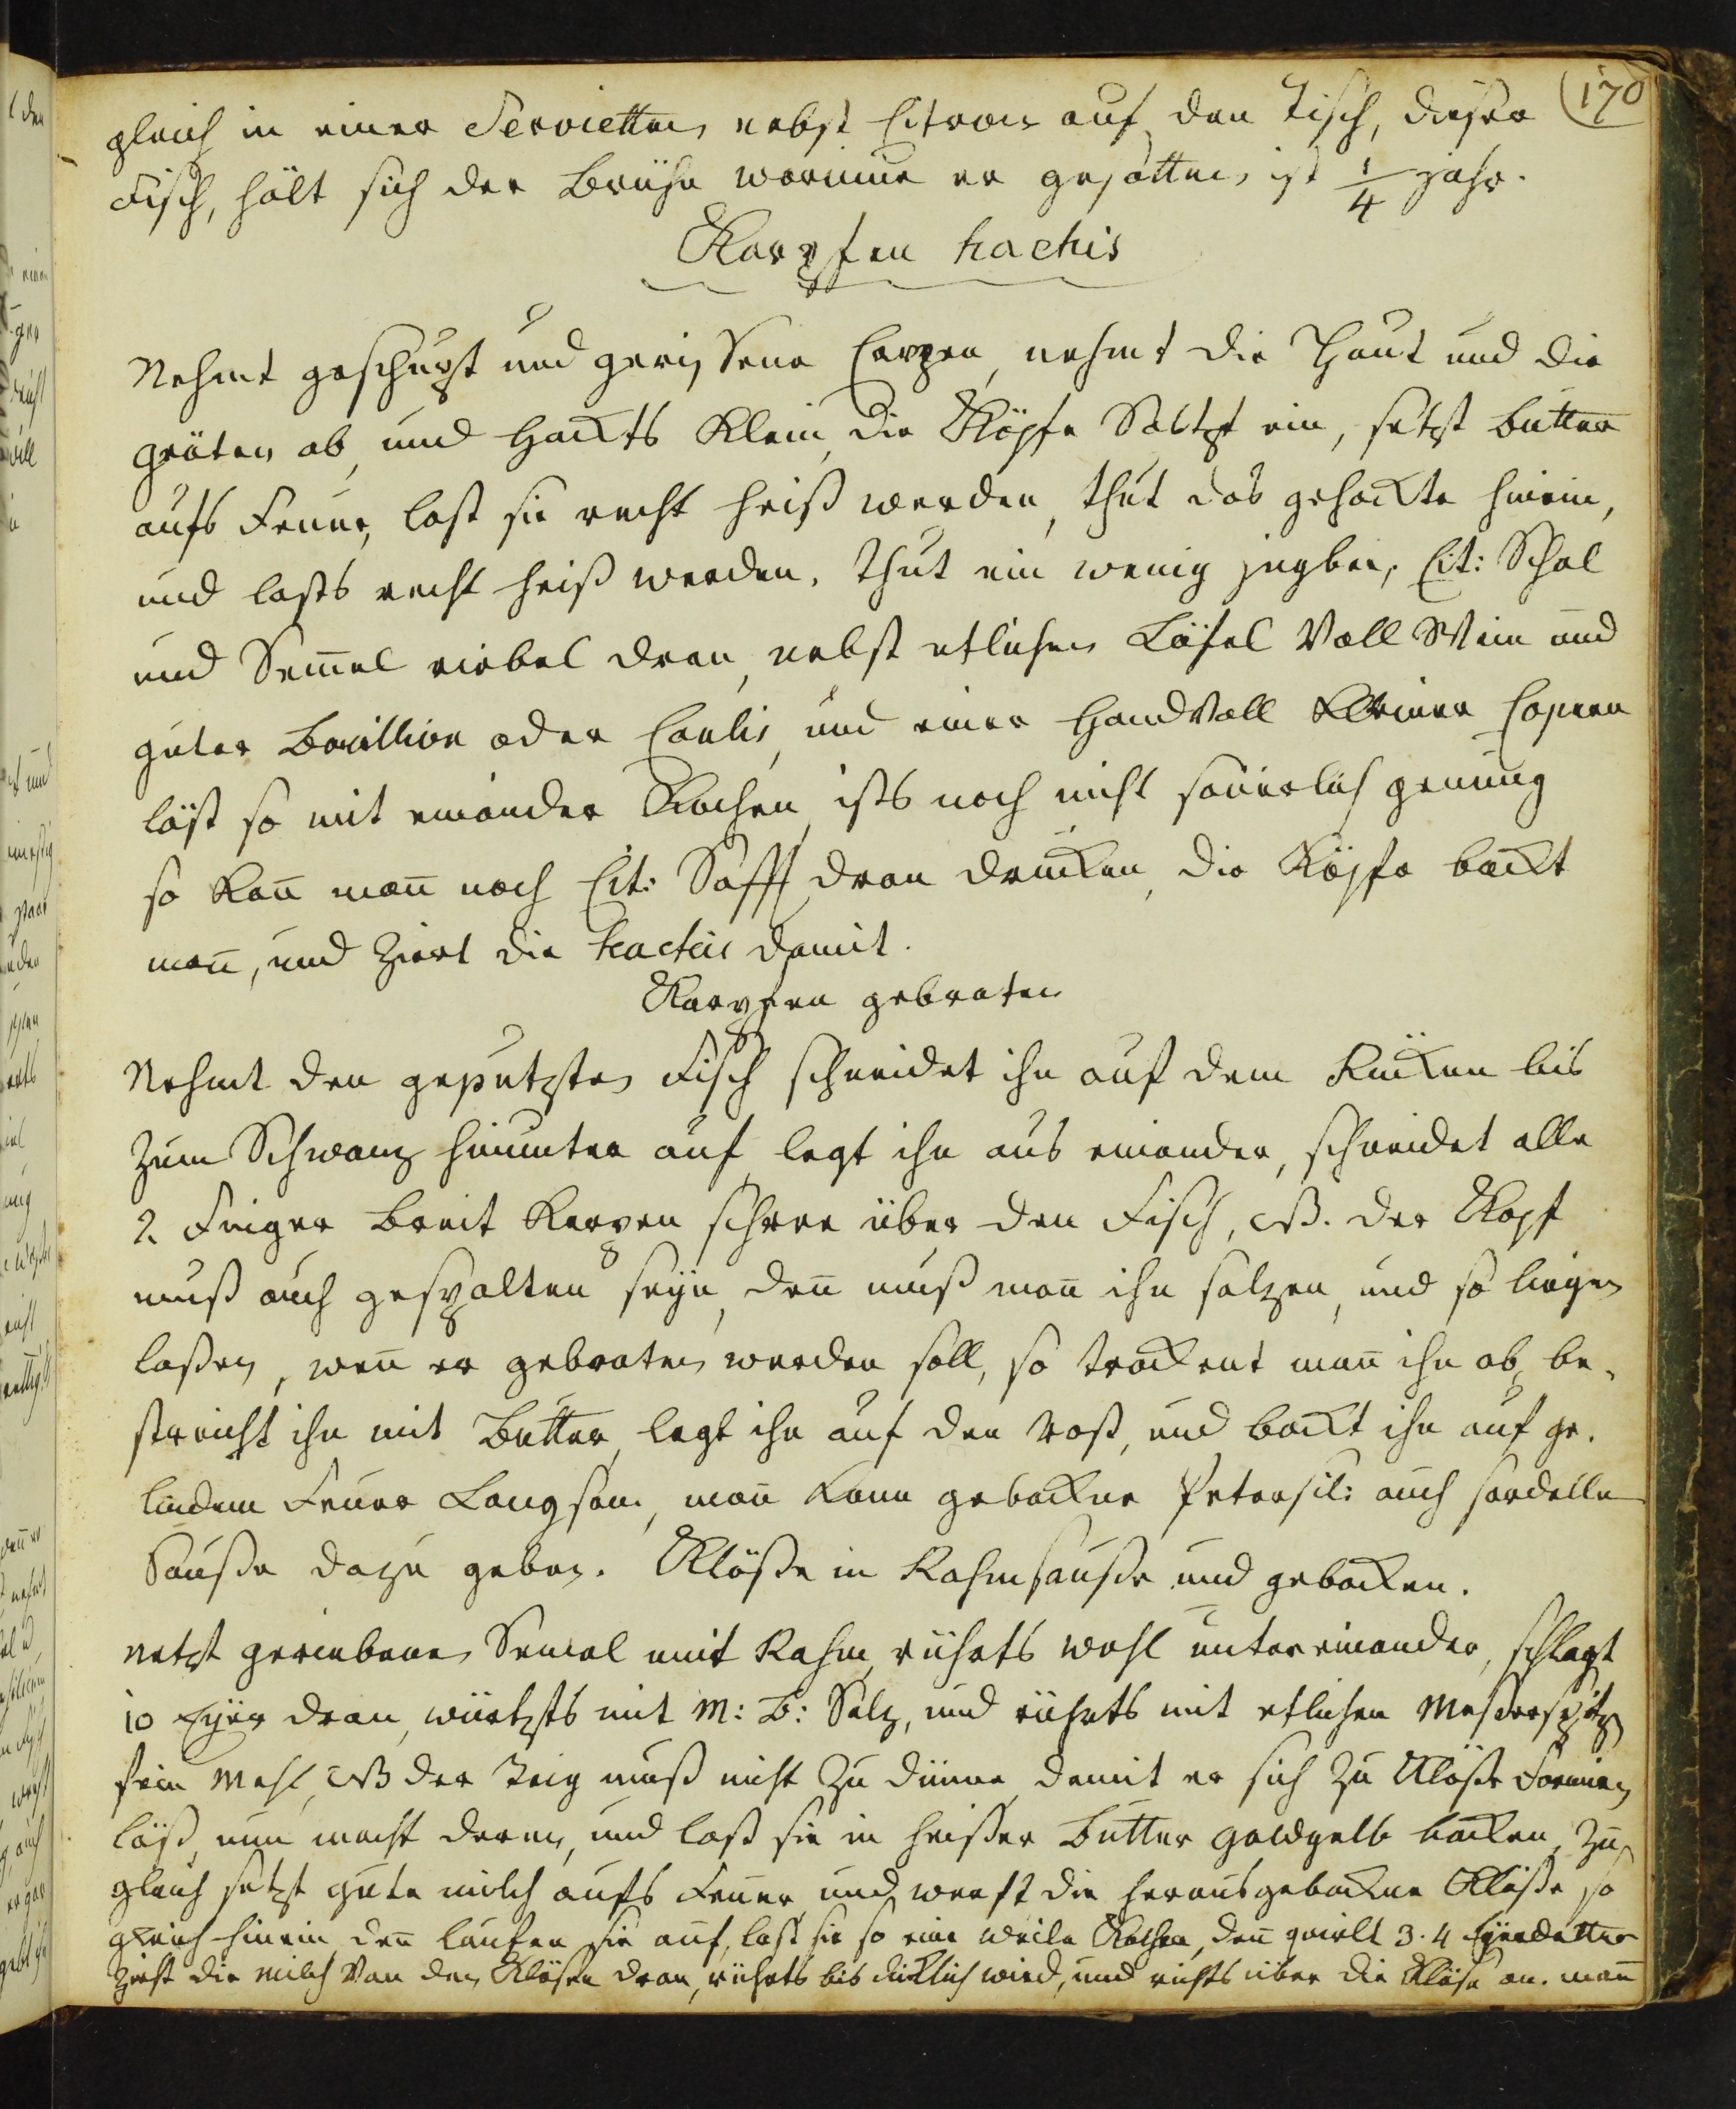 170
gleich in einer Servietten nebst Citron auf den Tisch, dieser
Fisch, hält sich der Brühe worinne er gesotten ist 1/4 Jahr.
Karpfen hachis
Nehmt geschupt und gerissene Carpen, nehmt die Haut und die
gräten ab, und Hackts Klein, die Köpfe Saltzt ein, setzt butter
aufs Feuer, last sie recht heiß werden, thut das gehackte hinein,
und lasts recht heiß werden. thut ein wenig jngber, Cit: Schal
und Sem̅el riebel dran, nebst etlichen Löfel Voll Wein und
guter Bouillion oder Coulis, und einer Handvoll Kleiner Capern
läst so mit einander Kochen, ists noch nicht säuerlich genung
so Kan̅ man̅ noch Cit: Safft dran drucken, die Köpfe backt
man̅, und Ziert die hachis damit.
Karpfen gebraten
Nehmt den geputzten Fisch schneidet ihn auf dem Rücken bis
Zum Schwanz hinunter auf, legt ihn aus einander, schneidet alle
2. Finger breit Kerpen schreer über den Fisch, NB. der Kopf
muß auch gespalten seyn, den̅ muß man̅ ihn salzen, und so liegen
laßen, wen̅ er gebraten werden soll, so trockent man̅ ihn ab, be-
streicht ihn mit Butter, legt ihn auf den Rost, und backt ihn auf ge-
lindem Feuer Langsam, man̅ kann gebackne Petersil: auch sardelle
Sauße dazu geben. Klöße in Rahmsauße und gebacken.
netzt geriebene Semel mit Rahm, rührts wohl untereinander, schlagt
10 Eyer dran, würtzts mit M: B: Salz, und rührts mit etlichen Messerspitz
fein Mehl, NB der Teig muß nicht Zu dünne, damit er sich Zu Klöße Formien
läß, nun macht deren, und laß sie in heißer Butter goldgelb backen, Zu
gleich setzt gute milch aufs Feuer, und werft die herausgebackne Klöße so
gleich hinein, den̅ laufen sie auf, last sie so eine weile Kochen, den̅ quirlt 3. 4 Eyerdotter
Zieht die milch Von den Klösen dran, rührts bis dicklich wird, und richts über die Klöse an. man̅